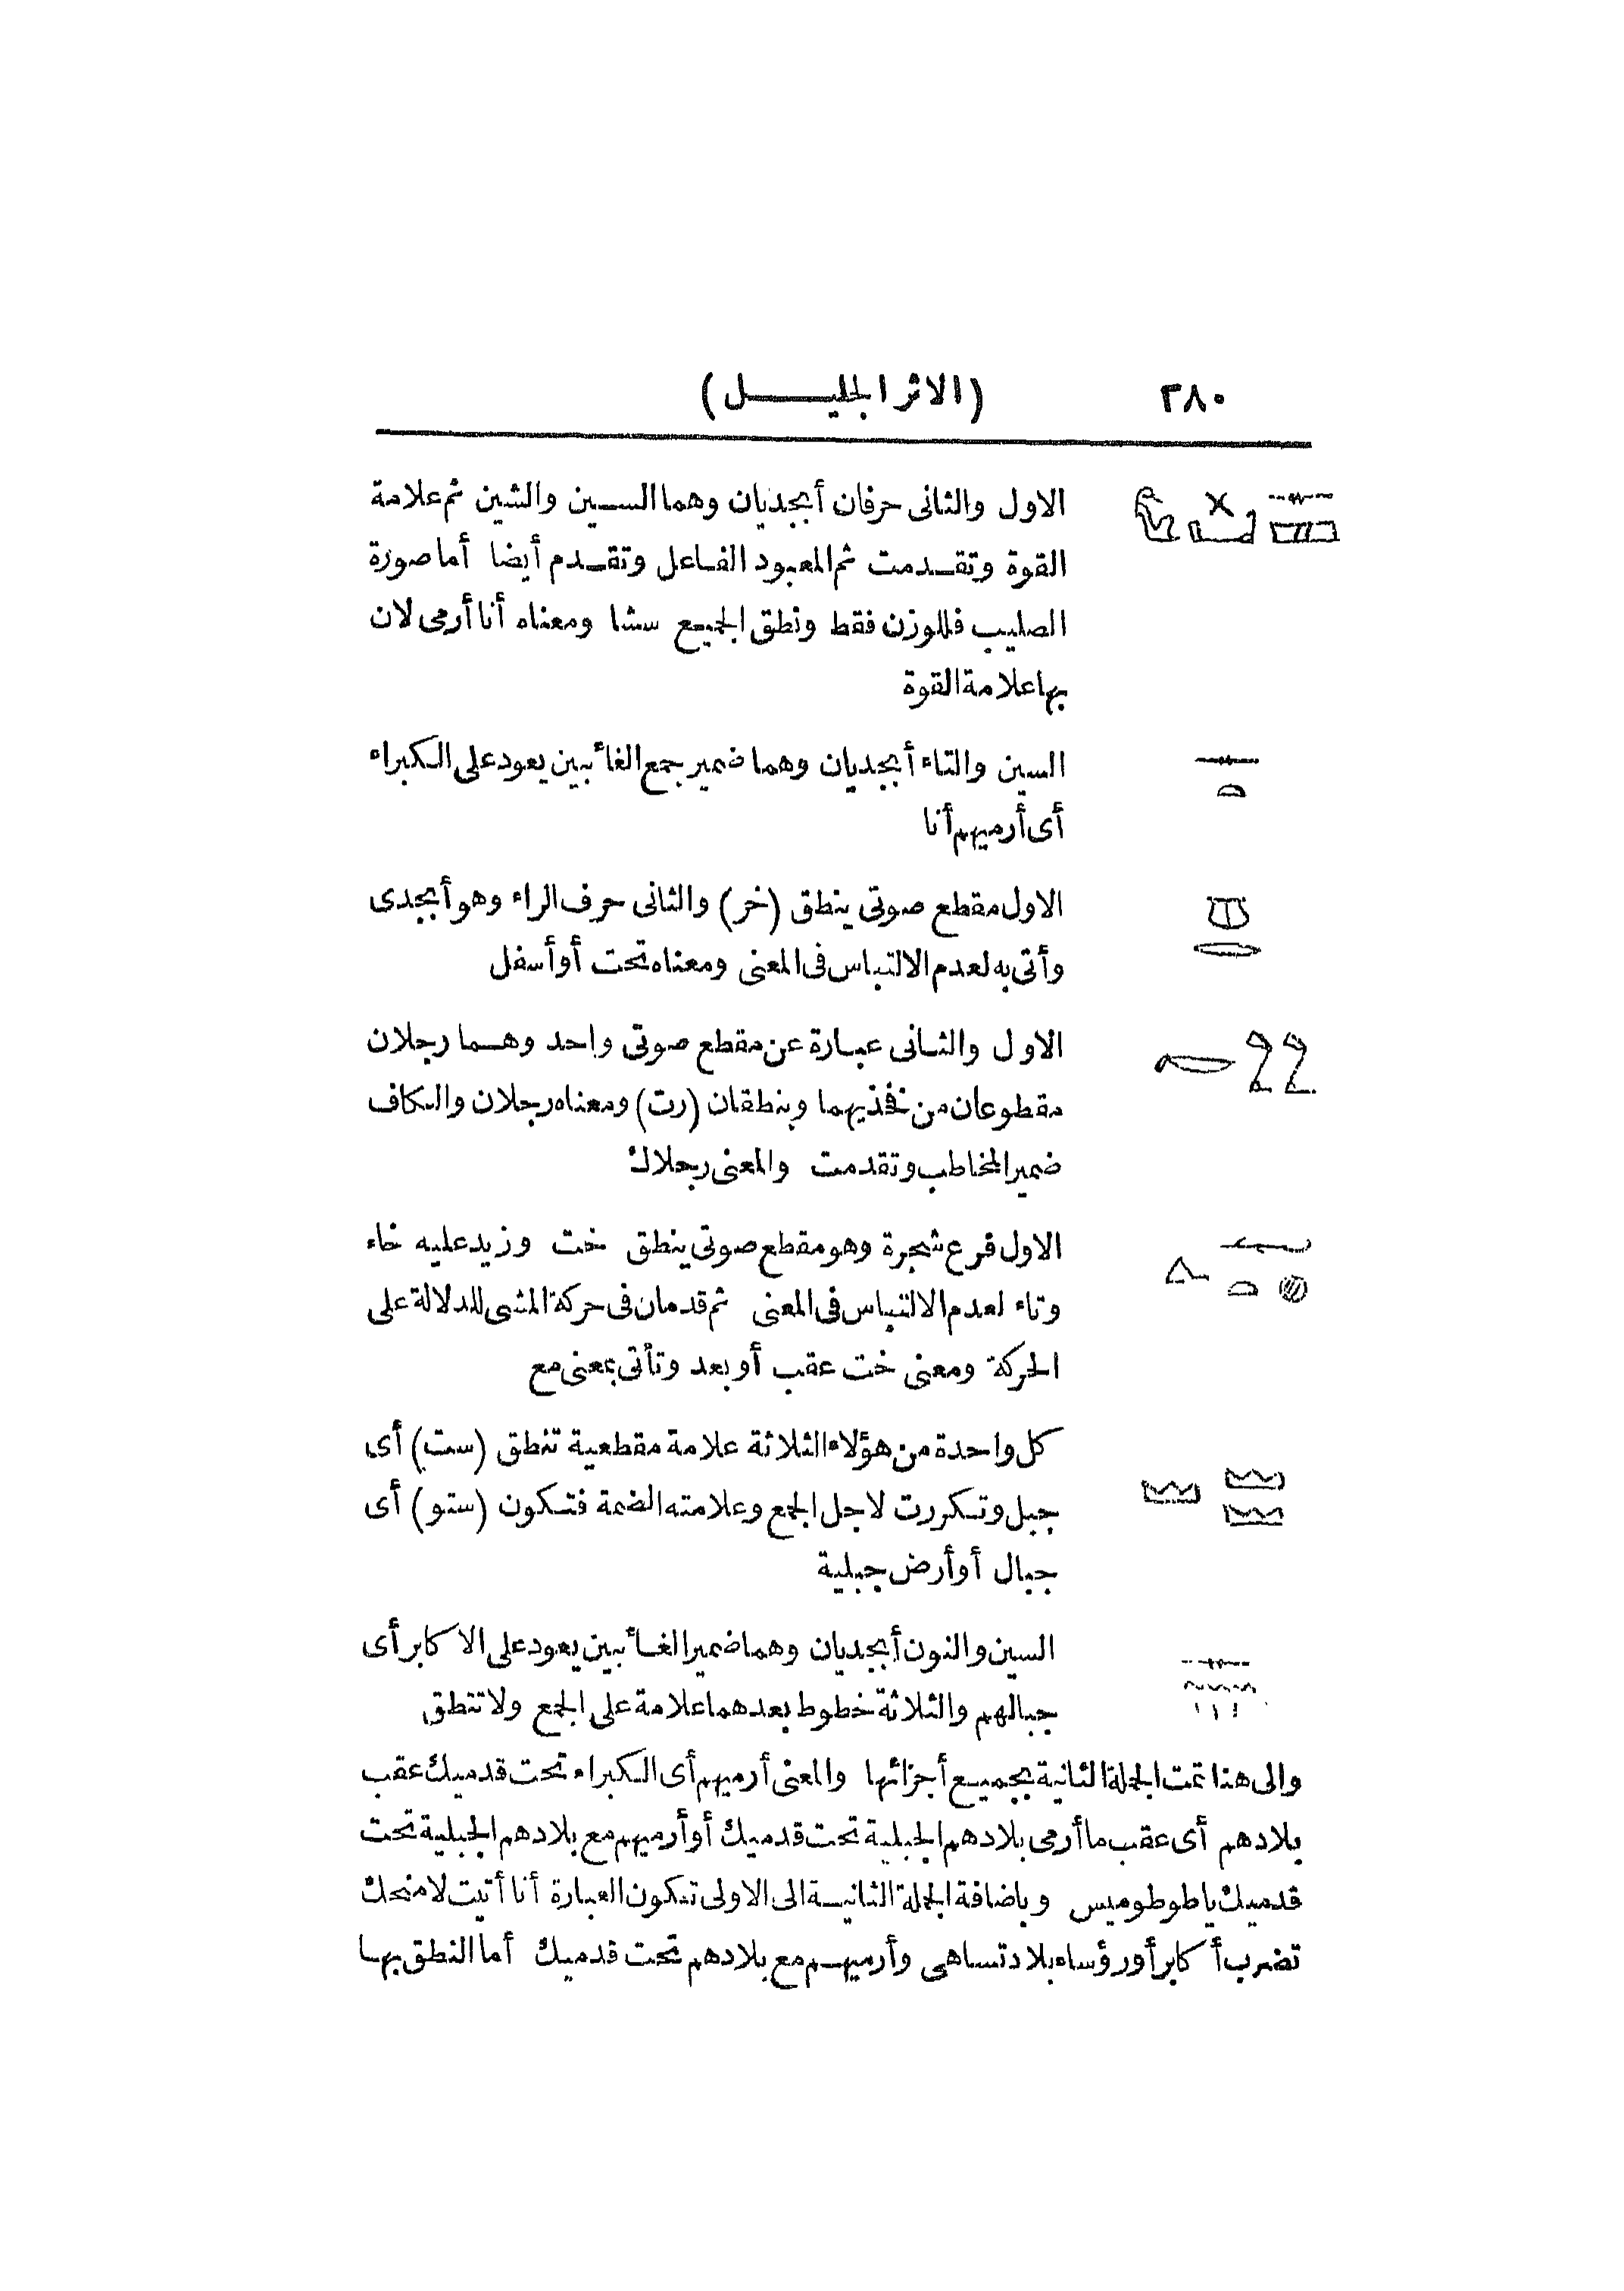 ٣٨٠ (الاثر الجليـــــل)
الاول والثانى حرفان أبجديان وهما الســين والشين ثم علامة
القوة وتقـدمت ثم المعبود الفـاعل وتقـدم أيضا أما صورة
الصليب فللوزن فقط ونطق الجميع سشا ومعناه أنا أرمى لان
بها علامة القوة
السين والتاء أبجديان وهما ضمير جمع الغائبين يعود على الكبراء
أى أرميهم أنا
الاول مقطع صوتى ينطق (خر) والثانى حرف الراء وهو أبجدى
وأتى به لعدم الالتباس فى المعنى ومعناه تحت أو أسفل
الاول والثـانى عبـارة عن مقطع صوتى واحد وهـما رجلان
مقطوعان من فخذيهما وينطقان (رت) ومعناه رجلان والكاف
ضمير المخاطب وتقدمت والمعنى رجلاك
الاول فرع شجرة وهو مقطع صوتى ينطق خت وزيد عليه خاء
وتاء لعدم الالتباس فى المعنى ثم قدمان فى حركة المشى للدلالة على
الحركة ومعنى خت عقب أو بعد وتأتى بمعنى مع
كل واحدة من هؤلاء الثلاثة علامة مقطعية تنطق (ست) أى
جبل وتكررت لاجل الجمع وعلامته الضمة فتكون (ستو) أى
جبال أو أرض جبلية
السين والنون أبجديان وهما ضمير الغـائبين يعود على الاكابر أى
جبالهم والثلاثة خطوط بعدهما علامة على الجمع ولا تنطق
والى هذا تمت الجملة الثانية بجميـع أجزائها والمعنى أرميهم أى الكبراء تحت قدميك عقب
بلادهم أى عقب ما أرمى بلادهم الجبلية تحت قدميك أو أرميهم مع بلادهم الجبلية تحت
قدميك يا طوطوميس وباضافة الجملة الثانيـة الى الاولى تكون العبارة أنا أتيت لامنحك
تضرب أكابر أو رؤساء بلاد تساهى وأرميهـم مع بلادهم تحت قدميك أما النطق بهـا